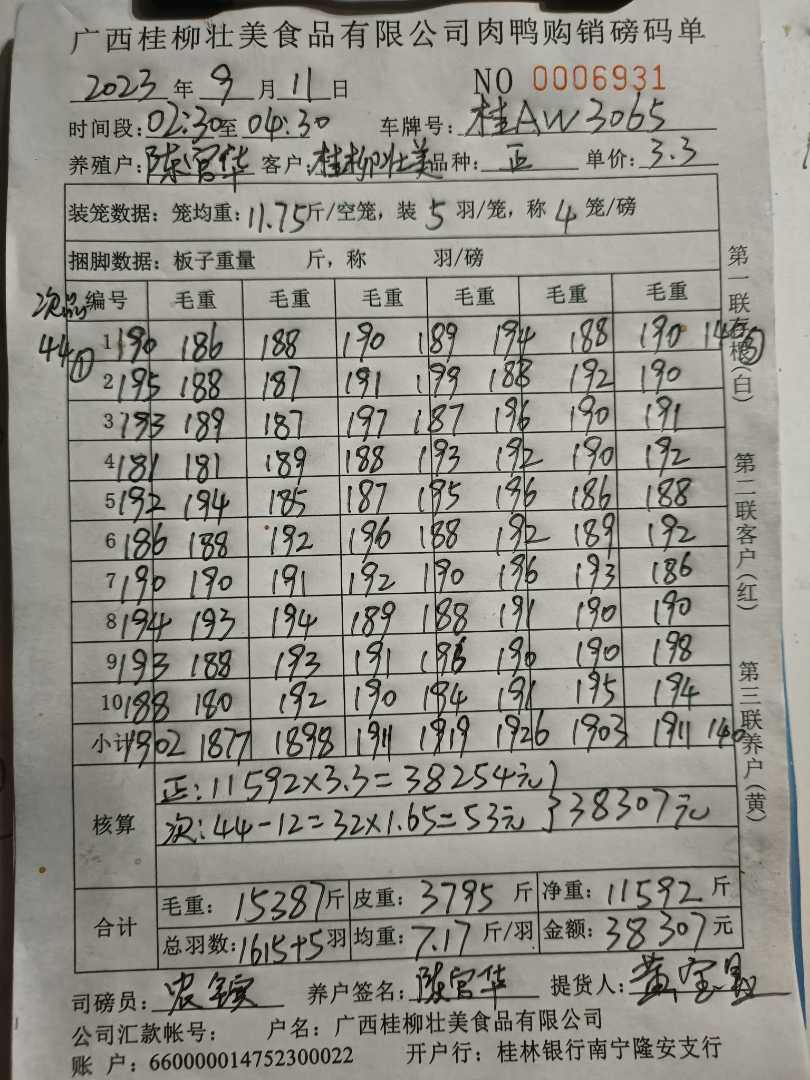 广西桂柳壮美食品有限公司肉鸭购销磅码单
2023 年 9 月 11 日 NO 0006931
时间段:02:30至 04:30 车牌号:桂AW3065
养殖户:陈宫华 客户:桂柳壮美 品种:正 单价:3.3
装笼数据:笼均重:11.75斤/空笼,装 5 羽/笼,称 4 笼/磅
捆脚数据:板子重量 斤,称 羽/磅
次品 编号 毛重 毛重 毛重 毛重 毛重 毛重
44① 1 190 186 188 190 189 194 188 190 140③
2 195 188 187 191 199 188 192 190
3 193 189 187 197 187 196 190 191
4 181 181 189 188 193 192 190 192
5 192 194 185 187 195 196 186 188
6 186 188 192 196 188 192 189 192
7 190 190 191 192 190 196 193 186
8 194 193 194 189 188 191 190 190
9 193 188 193 191 195 190 190 198
10 188 180 192 190 194 191 195 194
小计 1902 1877 1898 1911 1919 1926 1903 1911 140
核算
正:11592×3.3=38254元
次:44-12=32×1.65=53元 }38307元
合计
毛重:15387斤 皮重:3795 斤 净重:11592 斤
总羽数:1615+5羽 均重:7.17 斤/羽 金额:38307 元
司磅员:农 养户签名:陈宫华 提货人:黄宝
公司汇款帐号: 户名:广西桂柳壮美食品有限公司
账 户:660000014752300022 开户行:桂林银行南宁隆安支行
第一联存根(白)
第二联客户(红)
第三联养户(黄)